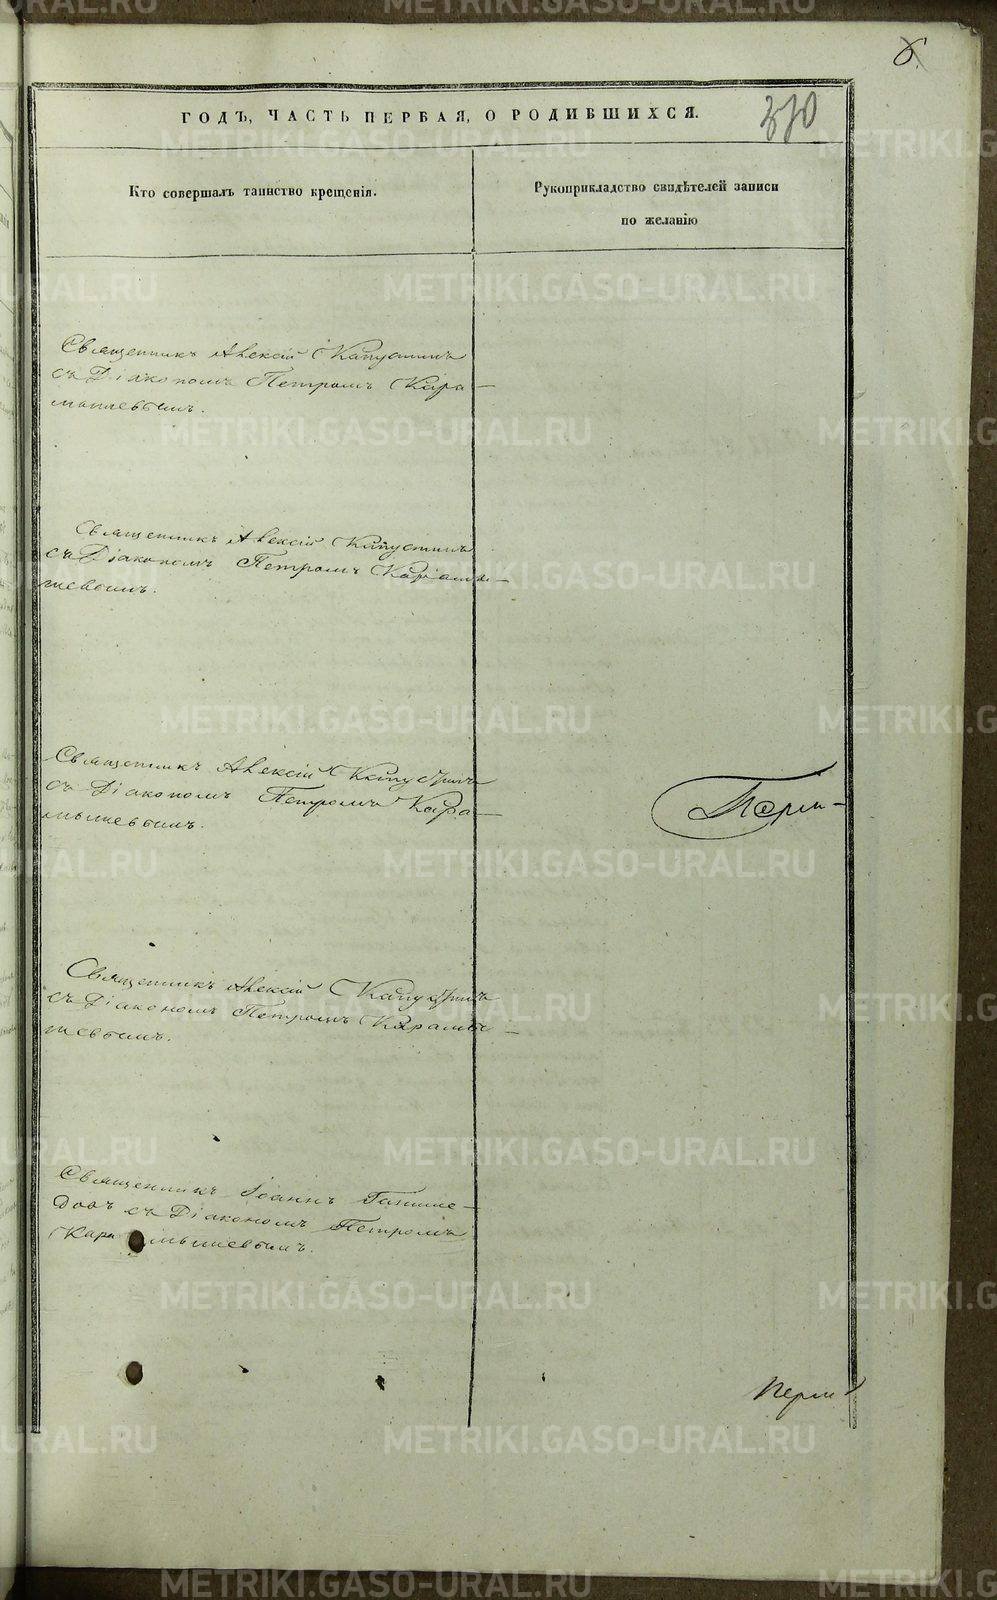 6.
ГОДЪ, ЧАСТЬ ПЕРВАЯ, О РОДИВШИХСЯ.
370
Кто совершалъ таинство крещенія.
Рукоприкладство свидѣтелей записи
по желанію
Священникъ Алексій Капустинъ
съ Діакономъ Петромъ Кара-
мышевымъ.
Священникъ Алексій Капустинъ
съ Діакономъ Петромъ Карамы-
шевымъ.
Священникъ Алексій Капустинъ
съ Діакономъ Петромъ Кара-
мышевымъ.
Перм-
Священникъ Алексій Капустинъ
съ Діакономъ Петромъ Карамы-
шевымъ.
Священникъ Іоаннъ
съ Діакономъ Петромъ
Карамышевымъ.
Перм
METRIKI.GASO-URAL.RU